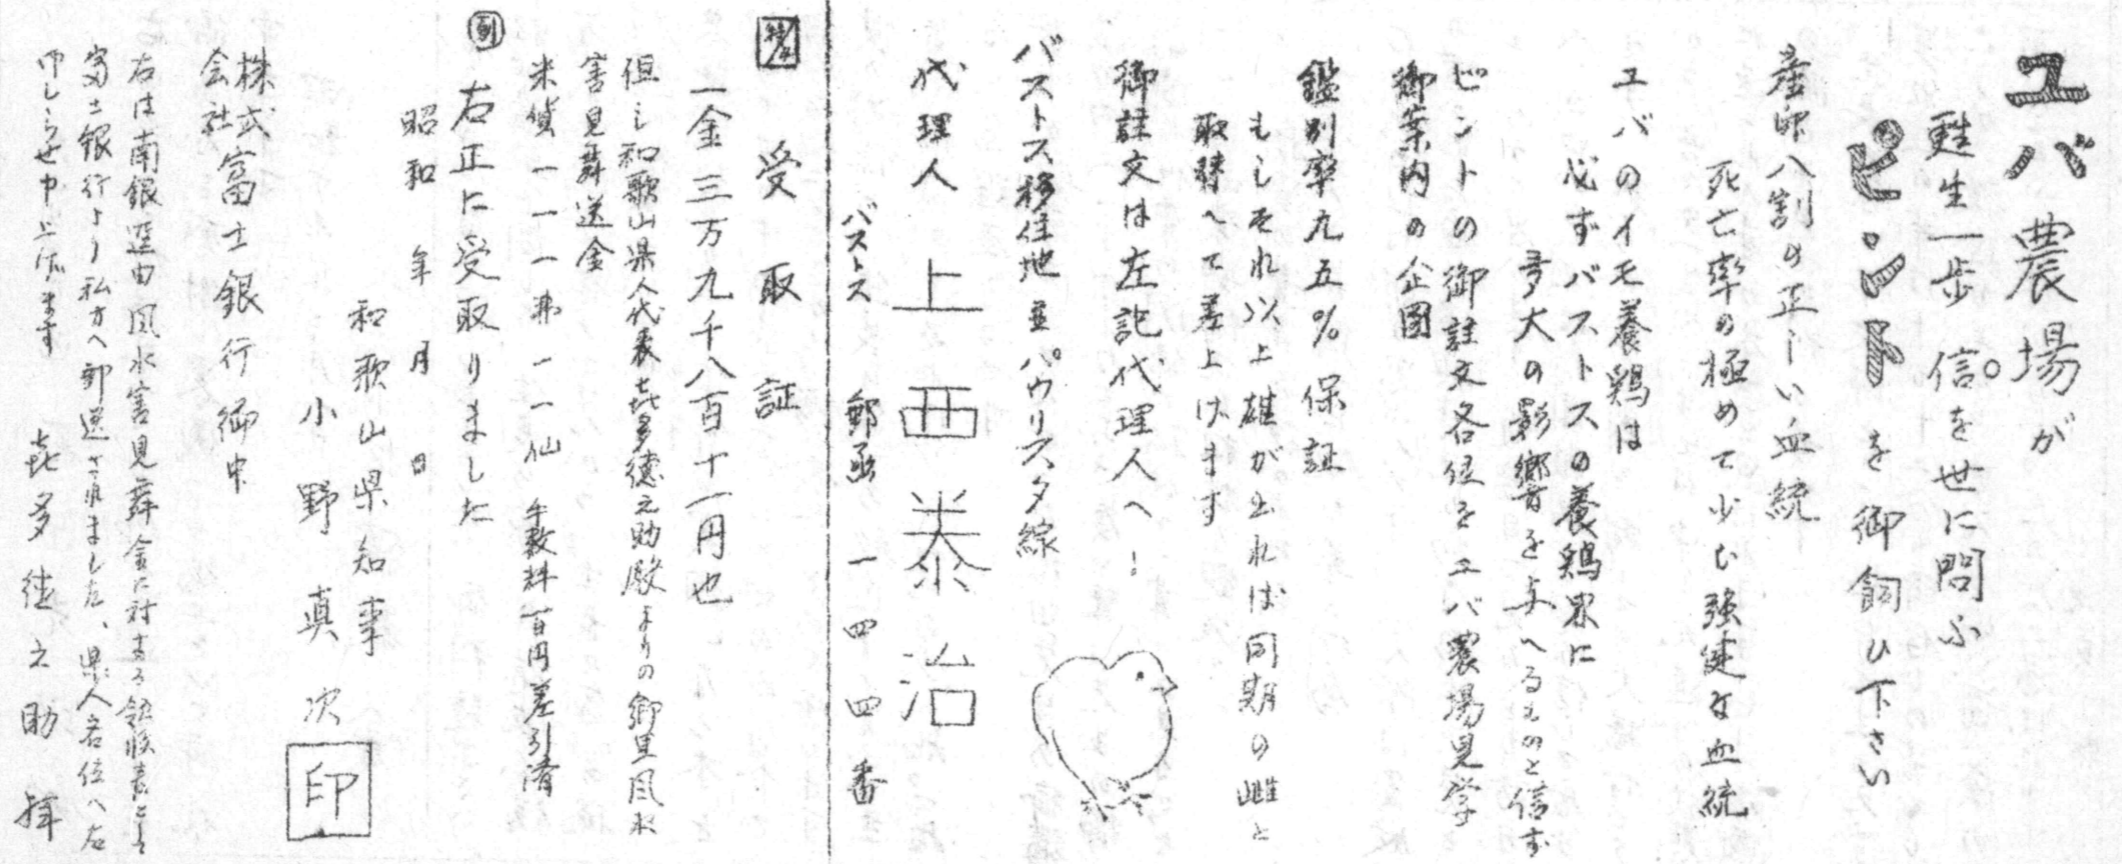 ユバ農場が
甦生一歩 信を世に問ふ
ピントを御飼ひ下さい
産卵八割の正しい血統
死亡率の極めて少ひ強健な血統
ユバのイモ養鶏は
必ずバストスの養鶏界に
多大の影響を与へるものと信ず
ピントの御註文各位をユバ農場見学
御案内の企図
鑑別率九五%保証
もしそれ以上雄が出れば同期の雌と
取替へて差上げます
御註文は左記代理人へ!
バストス移住地並パウリスタ線
代理人 上西泰治
バストス 郵函 一四四番
受取証
一金三万九千八百十一円也
但し和歌山県人代表喜多徳之助殿よりの郷里風水
害見舞送金
米貨一一一弗一一仙 手数料百円差引済
右正に受取りました
昭和 年 月 日
和歌山県知事
小野真次 印
株式会社富士銀行御中
右は南銀逕由風水害見舞金に対する領收書として
富士銀行より私方へ郵送されました、県人各位へ右
申上げます
喜多徳之助 拝